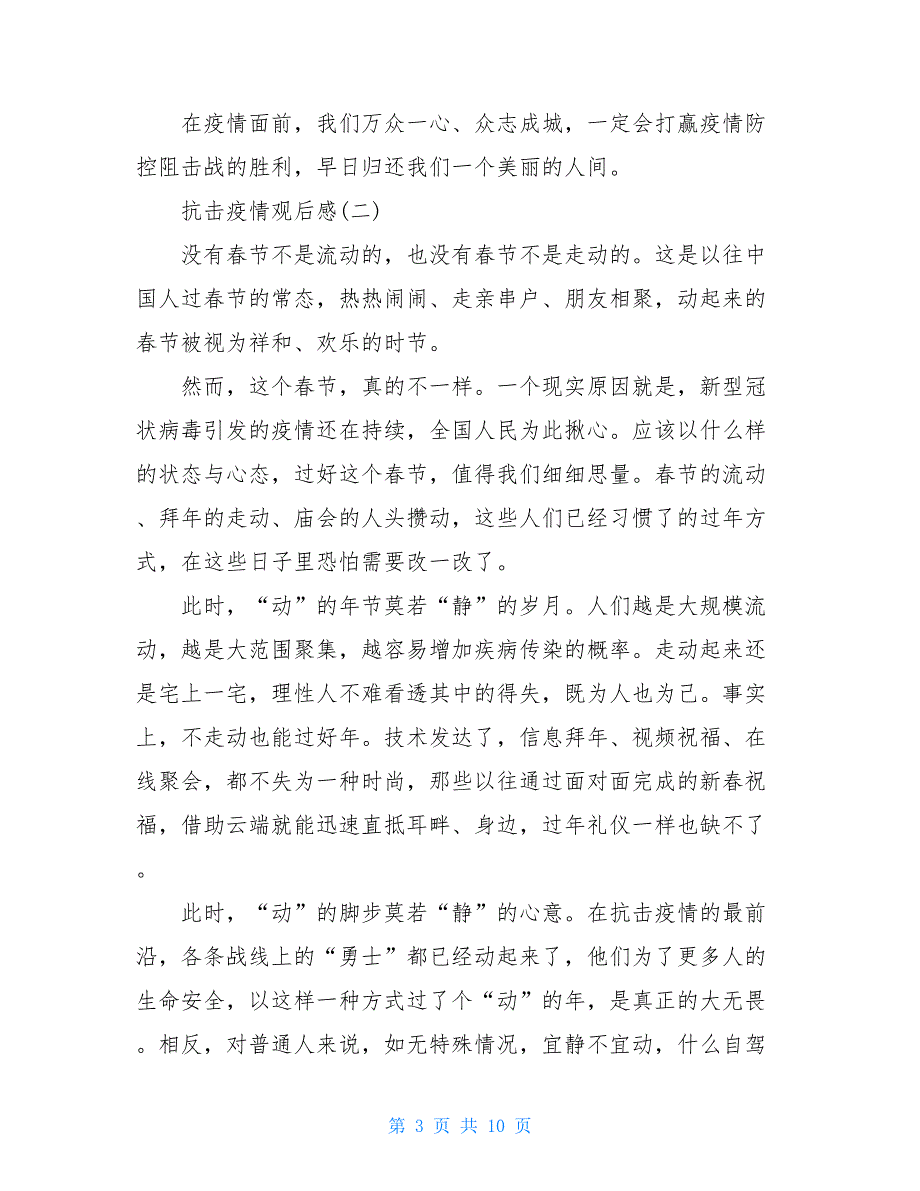 在疫情面前，我们万众一心、众志成城，一定会打赢疫情防
控阻击战的胜利，早日归还我们一个美丽的人间。
抗击疫情观后感(二)
没有春节不是流动的，也没有春节不是走动的。这是以往中
国人过春节的常态，热热闹闹、走亲串户、朋友相聚，动起来的
春节被视为祥和、欢乐的时节。
然而，这个春节，真的不一样。一个现实原因就是，新型冠
状病毒引发的疫情还在持续，全国人民为此揪心。应该以什么样
的状态与心态，过好这个春节，值得我们细细思量。春节的流动
、拜年的走动、庙会的人头攒动，这些人们已经习惯了的过年方
式，在这些日子里恐怕需要改一改了。
此时，“动”的年节莫若“静”的岁月。人们越是大规模流
动，越是大范围聚集，越容易增加疾病传染的概率。走动起来还
是宅上一宅，理性人不难看透其中的得失，既为人也为己。事实
上，不走动也能过好年。技术发达了，信息拜年、视频祝福、在
线聚会，都不失为一种时尚，那些以往通过面对面完成的新春祝
福，借助云端就能迅速直抵耳畔、身边，过年礼仪一样也缺不了
。
此时，“动”的脚步莫若“静”的心意。在抗击疫情的最前
沿，各条战线上的“勇士”都已经动起来了，他们为了更多人的
生命安全，以这样一种方式过了个“动”的年，是真正的大无畏
。相反，对普通人来说，如无特殊情况，宜静不宜动，什么自驾
第 3 页 共 10 页